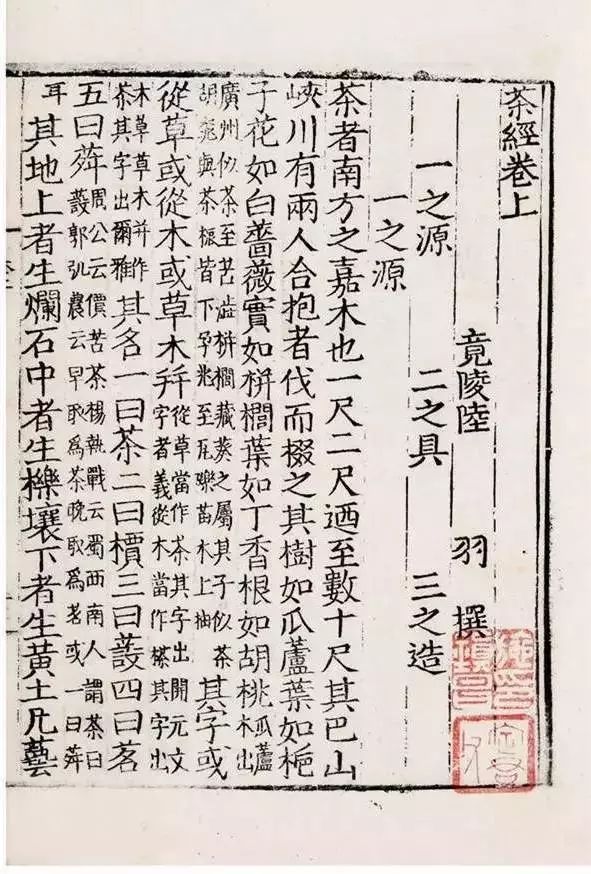 茶經卷上
竟陵陸 羽 撰
一之源 二之具 三之造
一之源
茶者南方之嘉木也一尺二尺迺至數十尺其巴山
峽川有兩人合抱者伐而掇之其樹如瓜蘆葉如梔
子花如白薔薇實如栟櫚葉如丁香根如胡桃瓜蘆木出
廣州似茶至苦澁栟櫚藏葵之屬其子似茶胡桃與茶根皆下孕兆至瓦礫苗木上抽其字或
從草或從木或草木并從草當作茶其字出開元文字者義從木當作㯶其字出
本草草木并作茶其字出爾雅其名一曰茶二曰檟三曰蔎四曰茗
五曰荈周公云檟苦茶楊執戟云蜀西南人謂茶曰蔎郭弘農云早取爲茶晚取爲茗或一曰荈
耳其地上者生爛石中者生櫟壤下者生黃土凡藝